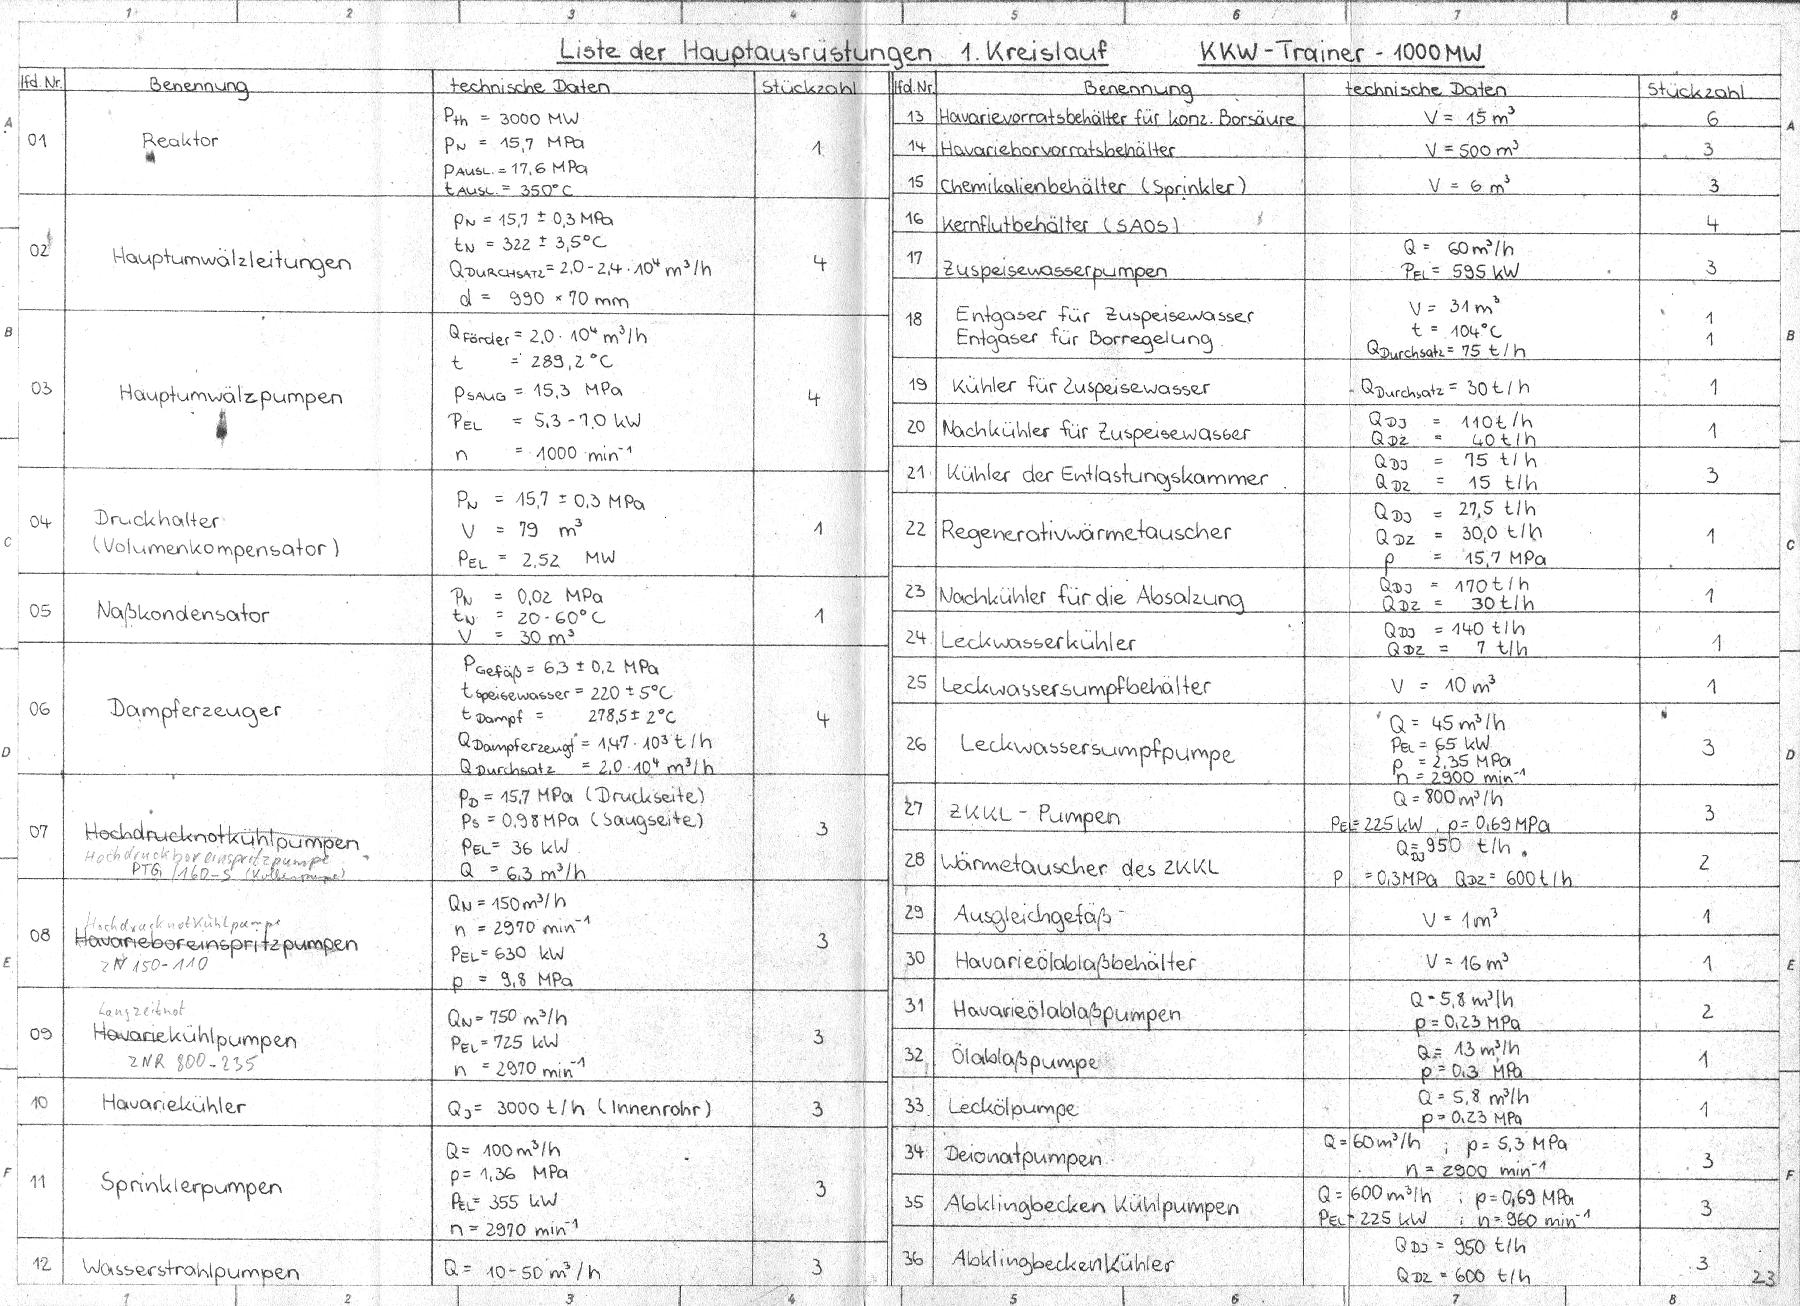 1 2 3 4 5 6 7 8
Liste der Hauptausrüstungen 1. Kreislauf KKW-Trainer - 1000 MW
lfd. Nr. Benennung technische Daten Stückzahl
01 Reaktor 1
Pth = 3000 MW
PN = 15,7 MPa
PAUSL. = 17,6 MPa
tAUSL. = 350°C
02 Hauptumwälzleitungen 4
PN = 15,7 ± 0,3 MPa
tN = 322 ± 3,5°C
QDURCHSATZ = 2,0 - 2,4 · 10⁴ m³/h
d = 990 × 70 mm
03 Hauptumwälzpumpen 4
QFörder = 2,0 · 10⁴ m³/h
t = 289,2°C
PSAUG = 15,3 MPa
PEL = 5,3 - 7,0 kW
n = 1000 min⁻¹
04 Druckhalter 1
(Volumenkompensator)
PN = 15,7 ± 0,3 MPa
V = 79 m³
PEL = 2,52 MW
05 Naßkondensator 1
PN = 0,02 MPa
tN = 20 - 60°C
V = 30 m³
06 Dampferzeuger 4
PGefäß = 6,3 ± 0,2 MPa
tSpeisewasser = 220 ± 5°C
tDampf = 278,5 ± 2°C
QDampferzeugt = 1,47 · 10³ t/h
QDurchsatz = 2,0 · 10⁴ m³/h
07 Hochdrucknotkühlpumpen 3
Hochdruckboreinspritzpumpe
PTGi/160-S (Kolbenpumpe)
PD = 15,7 MPa (Druckseite)
PS = 0,98 MPa (Saugseite)
PEL = 36 kW
Q = 6,3 m³/h
Hochdrucknotkühlpumpe
08 Havarieboreinspritzpumpen 3
ZN 150-110
QN = 150 m³/h
n = 2970 min⁻¹
PEL = 630 kW
p = 9,8 MPa
Langzeitnot
09 Havariekühlpumpen 3
ZNR 800-235
QN = 750 m³/h
PEL = 725 kW
n = 2970 min⁻¹
10 Havariekühler QJ = 3000 t/h (Innenrohr) 3
11 Sprinklerpumpen 3
Q = 100 m³/h
p = 1,36 MPa
PEL = 355 kW
n = 2970 min⁻¹
12 Wasserstrahlpumpen Q = 10-50 m³/h 3
lfd. Nr. Benennung technische Daten Stückzahl
13 Havarievorratsbehälter für konz. Borsäure V = 15 m³ 6
14 Havarieborvorratsbehälter V = 500 m³ 3
15 Chemikalienbehälter (Sprinkler) V = 6 m³ 3
16 Kernflutbehälter (SAOS) 4
17 Zuspeisewasserpumpen 3
Q = 60 m³/h
PEL = 595 kW
18 Entgaser für Zuspeisewasser 1
Entgaser für Borregelung 1
V = 31 m³
t = 104°C
QDurchsatz = 75 t/h
19 Kühler für Zuspeisewasser QDurchsatz = 30 t/h 1
20 Nachkühler für Zuspeisewasser 1
QDJ = 110 t/h
QDZ = 40 t/h
21 Kühler der Entlastungskammer 3
QDJ = 75 t/h
QDZ = 15 t/h
22 Regenerativwärmetauscher 1
QDJ = 27,5 t/h
QDZ = 30,0 t/h
p = 15,7 MPa
23 Nachkühler für die Absalzung 1
QDJ = 170 t/h
QDZ = 30 t/h
24 Leckwasserkühler 1
QDJ = 140 t/h
QDZ = 7 t/h
25 Leckwassersumpfbehälter V = 10 m³ 1
26 Leckwassersumpfpumpe 3
Q = 45 m³/h
PEL = 65 kW
p = 2,35 MPa
n = 2900 min⁻¹
27 ZKKL - Pumpen 3
Q = 800 m³/h
PEL = 225 kW, p = 0,69 MPa
28 Wärmetauscher des ZKKL 2
QDJ = 950 t/h
P = 0,3 MPa QDZ = 600 t/h
29 Ausgleichgefäß V = 1 m³ 1
30 Havarieölablaßbehälter V = 16 m³ 1
31 Havarieölablaßpumpen 2
Q = 5,8 m³/h
p = 0,23 MPa
32 Ölablaßpumpe 1
Q = 13 m³/h
p = 0,3 MPa
33 Leckölpumpe 1
Q = 5,8 m³/h
p = 0,23 MPa
34 Deionatpumpen 3
Q = 60 m³/h ; p = 5,3 MPa
n = 2900 min⁻¹
35 Abklingbecken Kühlpumpen 3
Q = 600 m³/h ; p = 0,69 MPa
PEL = 225 kW ; n = 960 min⁻¹
36 Abklingbeckenkühler 3
QDJ = 950 t/h
QDZ = 600 t/h
23
A B C D E F
A B C D E F
1 2 3 4 5 6 7 8